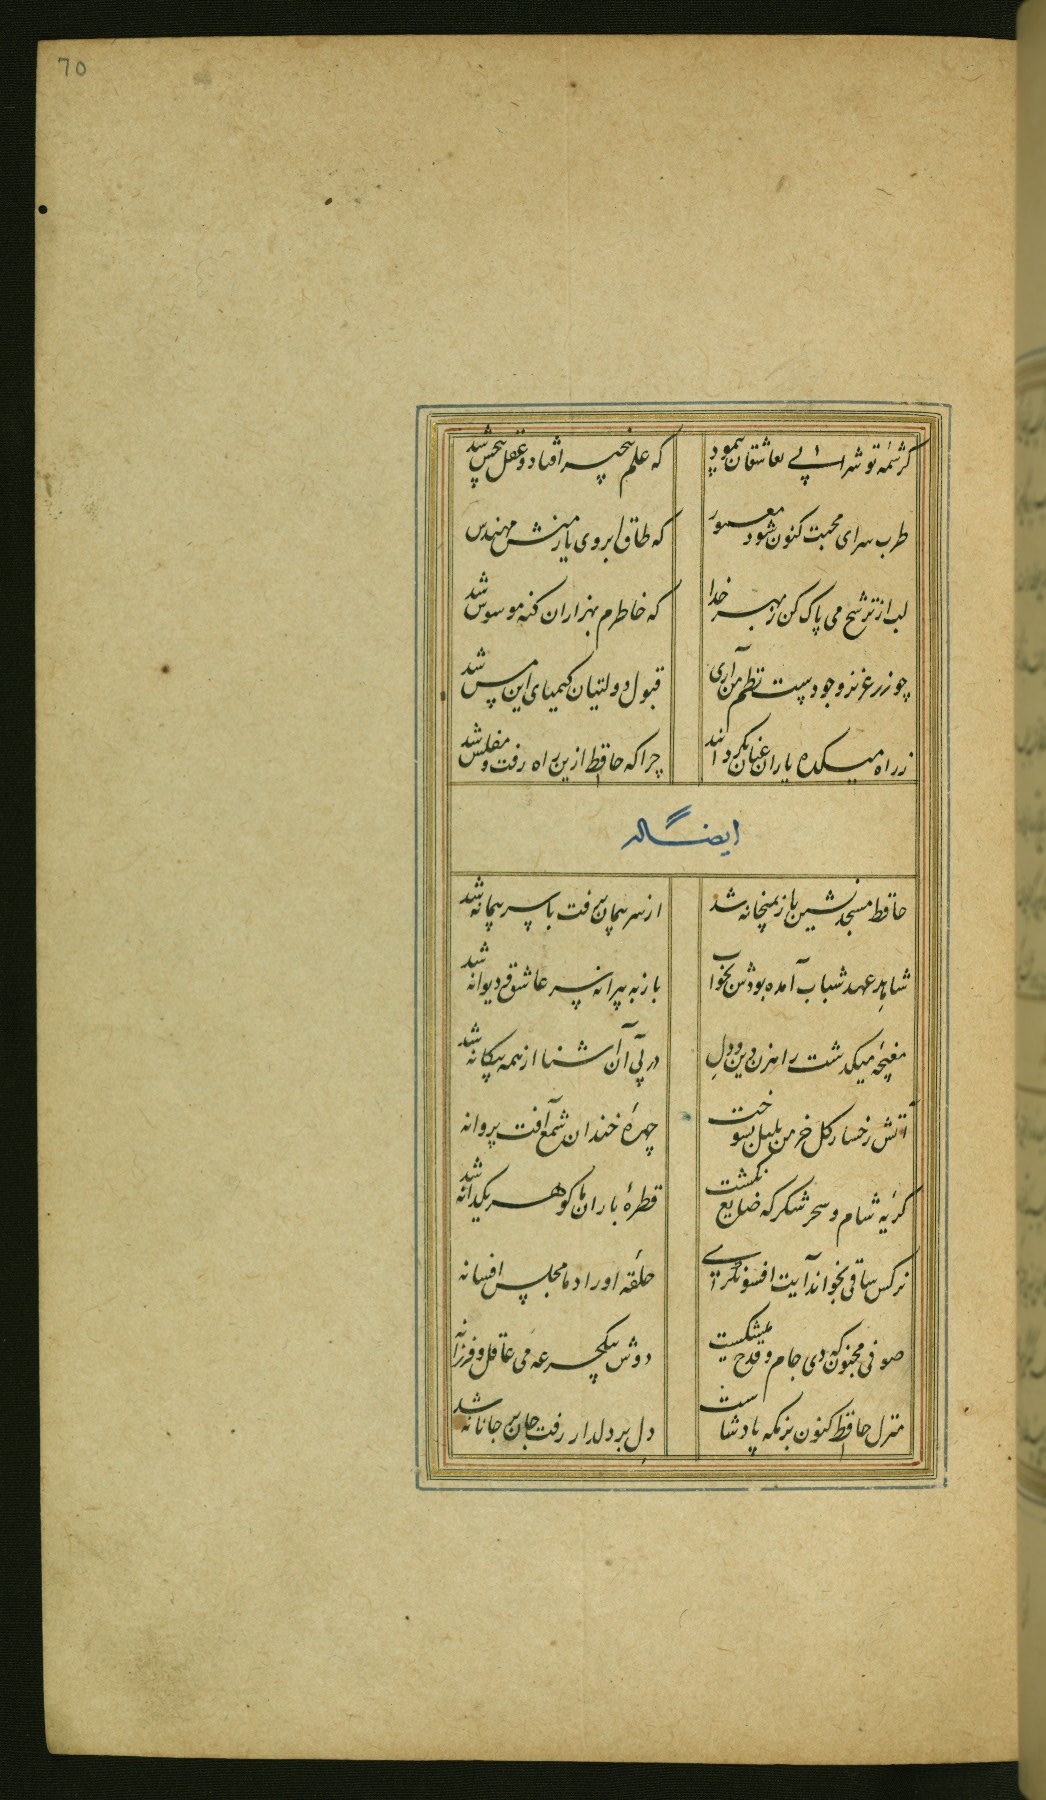 70
کرشمه تو شرابی بعاشقان پیمود
که علم بیخبر افتاد و عقل بیحس شد
طرب سرای محبت کنون شود معمور
که طاق ابروی یار منش مهندس شد
لب از ترشح می پاک کن ز بهر خدا
که خاطرم بهزاران کنه موسوس شد
چو زر عزیز وجودست نظم من آری
قبول دولتیان کیمیای این مس شد
ز راه میکده یاران عنان بگردانند
چرا که حافظ ازین راه رفت و مفلس شد
ایضاله
حافظ مسجد نشین باز بمیخانه شد
از سر پیمان برفت با سر پیمانه شد
شاهد عهد شباب آمده بودش بخواب
باز به پیرانه سر عاشق و دیوانه شد
مغبچه میگذشت راهزن دین و دل
در پی آن آشنا از همه بیکانه شد
آتش رخسار کل خرمن بلبل بسوخت
چهرهٔ خندان شمع آفت پروانه
کریه شام و سحر شکر که ضایع نکشت
قطرهٔ باران ما کوهر یکدانه شد
نرکس ساقی بخواند آیت افسونگری
حلقه اوراد ما مجلس افسانه
صوفی مجنون که دی جام و قدح میشکست
دوش بیکجرعه می عاقل و فرزانه
منزل حافظ کنون بزمکه پادشاست
دل بر دلدار رفت جان بر جانانه شد